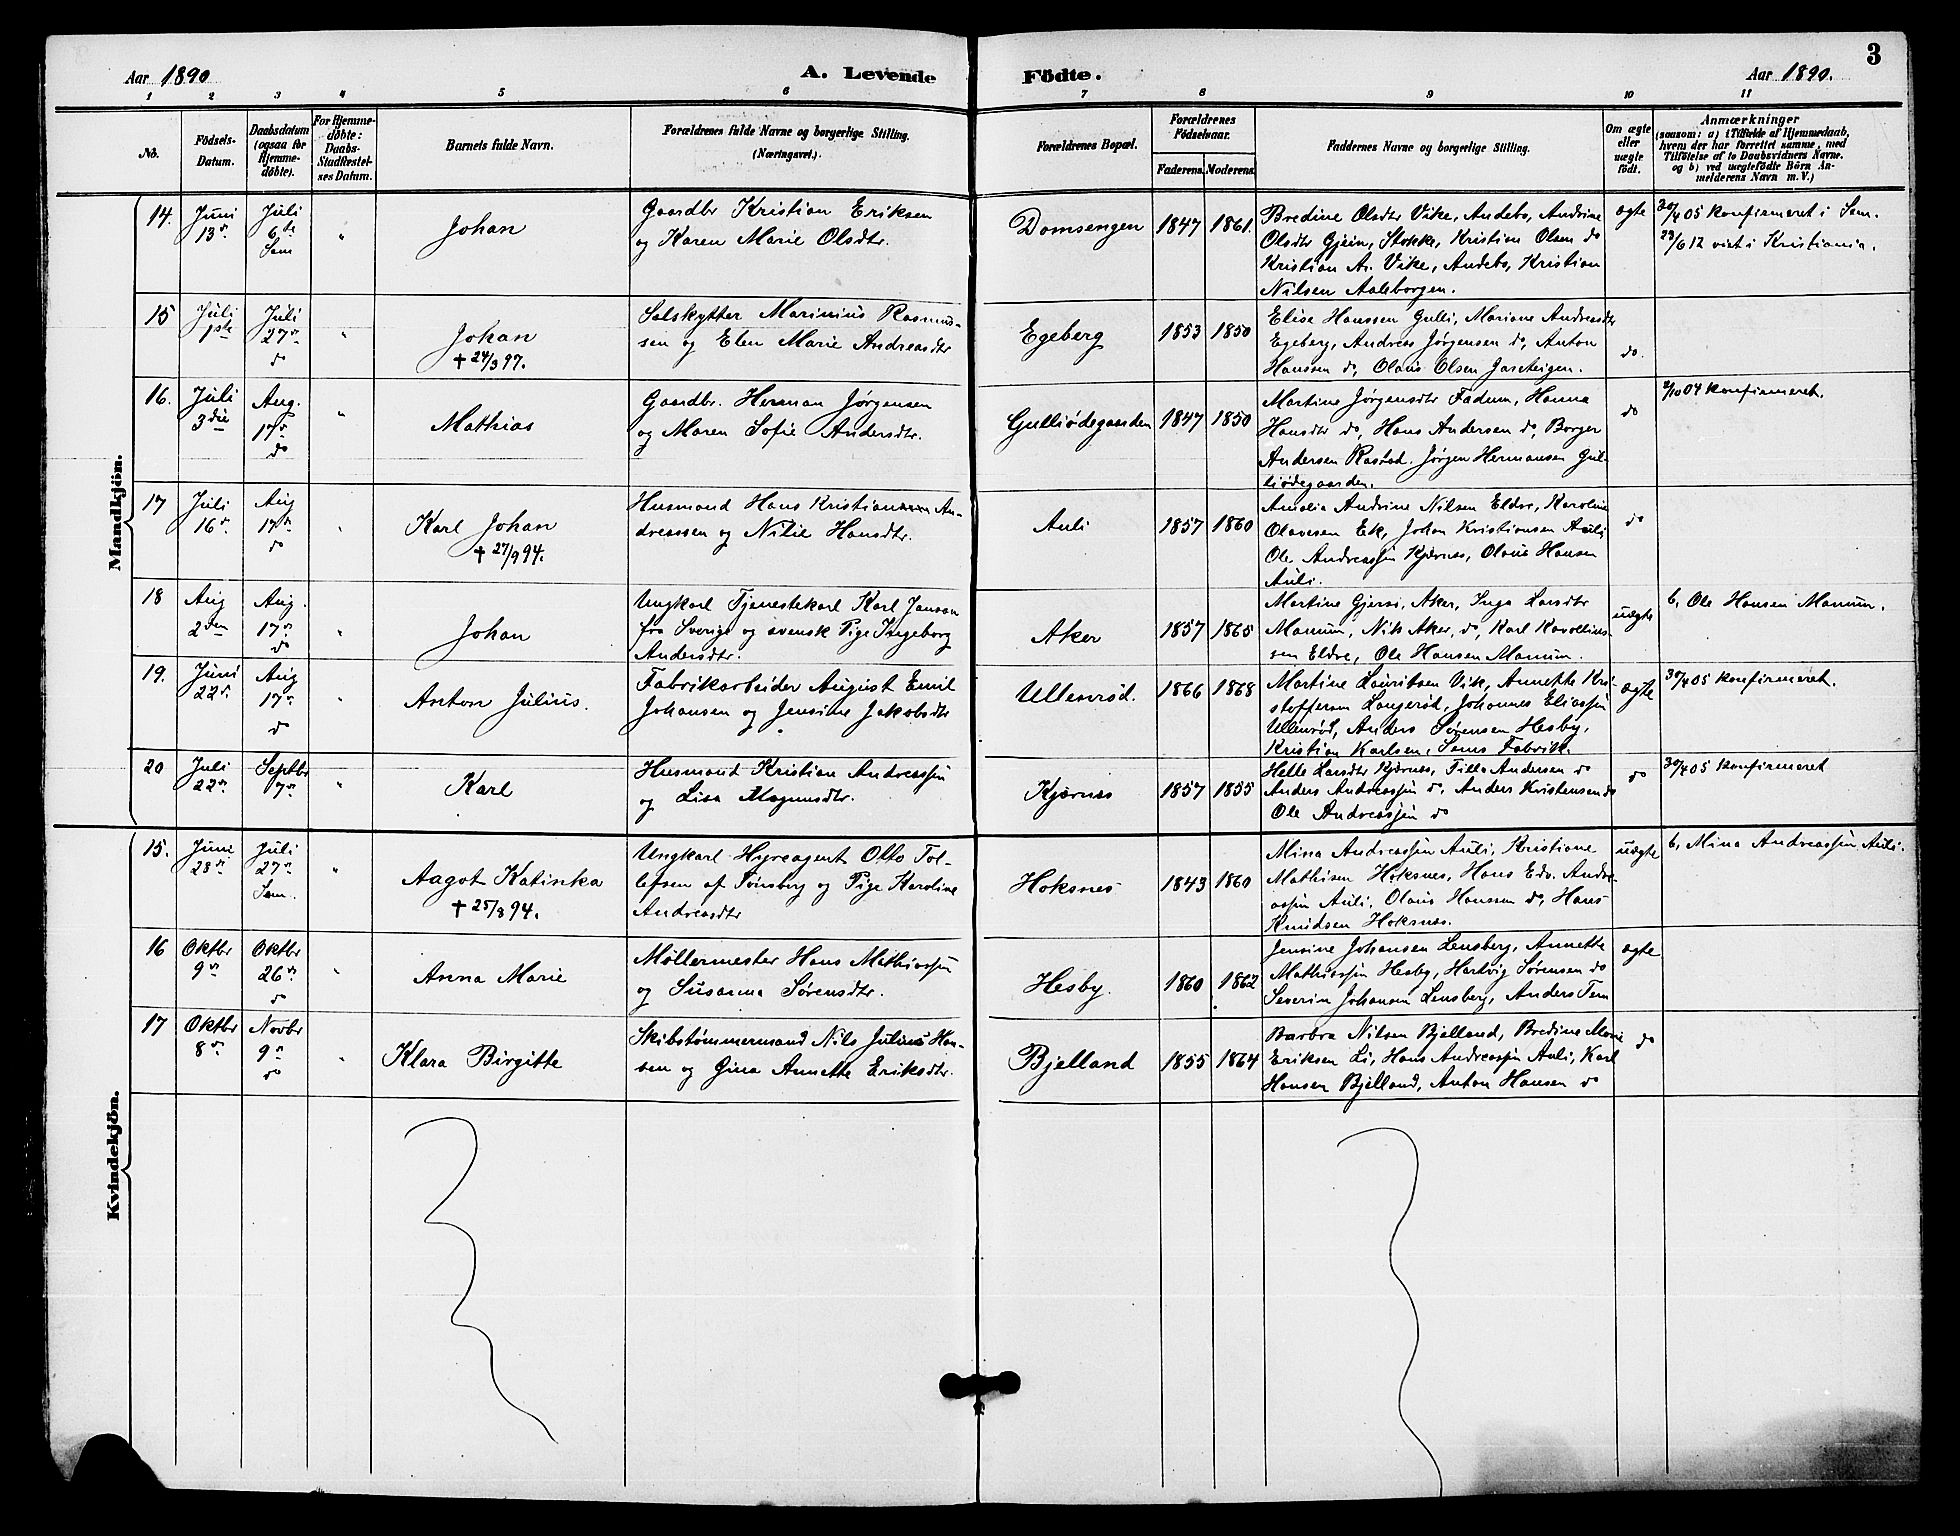 3
Aar 1890
A. Levende
Födte.
Aar 1890.
1 2 3 4 5 6 7 8 9 10 11
No.
Födsels-
Datum.
Daabsdatum
(ogsaa for
Hjemme-
döbte).
For Hjemme-
döbte:
Daabs-
Stadfæstel-
ses Datum.
Barnets fulde Navn.
Forældrenes fulde Navne og borgerlige Stilling.
(Næringsvei.)
Forældrenes Bopæl.
Forældrenes
Födselsaar.
Faderens. Moderens.
Faddernes Navne og borgerlige Stilling.
Om ægte
eller
uægte
födt.
Anmærkninger
(saasom: a) i Tilfælde af Hjemmedaab,
hvem der har forrettet samme, med
Tilföielse af to Daabsvidners Navne.
og b) ved uægtefödte Börn An-
melderens Navn m. V.)
Mandkjön.
14.
Juni
13de
Juli
6te
Sem
"
Johan
Gaardbr Kristian Eriksen
og Karen Marie Olsdtr.
Domsengen
1847
1861.
Bredine Olsdtr Vike, Andebo, Andrine
Olsdtr Gjein, Stokke, Kristian Olsen do
Kristian A. Vike, Andebo, Kristian
Nilsen Aalsborgen.
ægte
30/4 05 konfirmeret i Sem.
23/6 12 viet i Kristiania.
15
Juli
1ste
Juli
27de
do
"
Johan
+ 24/3 97.
Selskytter Marinius Rasmus-
sen og Elen Marie Andreasdtr
Egeberg
1853
1850
Elise Hanssen Gulli, Mariane Andreasdtr
Egeberg, Andreas Jørgensen do, Anton
Hanssen do, Olaus Olsen Jareteigen.
do.
16.
Juli
3die
Aug.
17de
do
"
Mathias
Gaardbr. Herman Jørgensen
og Maren Sofie Andersdtr.
Gulliødegaarden
1847
1850
Martine Jørgensdtr Fadum, Hanna
Hansdtr do, Hans Andersen do, Borger
Andersen Rastad. Jørgen Hermansen Gul-
liødegaarden.
do
2/10 04 konfirmeret.
17
Juli
16de
Aug
17de
do
"
Karl Johan
+ 27/9 94.
Husmand Hans Kristian An-
dreassen og Nilie Hansdtr.
Auli
1857
1860
Amalia Andrine Nilsen Eldre, Karoline
Olavesen Ek, Johan Kristiansen Auli
Ole Andreassen Kjærnes, Olaus Hansen
Auli.
do
18
Aug
2den
Aug.
17de
do
"
Johan
Ungkarl Tjenestekarl Karl Janson
fra Sverige og svensk Pige Ingeborg
Andersdtr.
Aker
1857
1865
Martine Aker, Inga Larsdtr
Manum, Nils Aker, do, Karl
sen Eldre, Ole Hansen Manum.
uægte
b, Ole Hansen Manum.
19.
Juni
22de
Aug
17de
do
"
Anton Julius.
Fabrikarbeider August Emil
Johansen og Jensine Jakobsdtr
Ullensrød.
1866
1868
Martine Lauritsen Vik, Annette Kri-
stoffersen Langerød, Johannes Eliassen
Ullensrød, Anders Sørensen Hesby,
Kristian Karlsen, Sems Fabrik.
ægte
30/4 05 konfirmeret.
20
Juli
22de
Septbr
7de
"
Karl
Husmand Kristian Andreassen
og Lisa Magnusdtr.
Kjærnes
1857
1855
Helle Larsdtr Kjærnes, Tilla Andersen do
Anders Andreassen do, Anders Kristensen do
Ole Andreassen do
do
30/4 05 konfirmeret
Kvindekjön.
15.
Juni
28de
Juli
27de
Sem.
"
Aagot Katinka
+ 25/8 94.
Ungkarl Hyreagent Otto Tol-
lefsen af Tønsberg og Pige Karoline
Andreasdtr
Hoksnes
1843
1860
Mina Andreassen Auli, Kristiane
Mathisen Hoksnes, Hans Edv. Andre-
assen Auli, Olaus Hanssen do, Hans
Knudsen Hoksnes.
uægte
b, Mina Andreassen Auli.
16
Oktbr
9de
Oktbr
26de
do
"
Anna Marie
Møllermester Hans Mathiassen
og Susanna Sørensdtr.
Hesby.
1860
1862
Jensine Johansen Lensberg, Annette
Mathiassen Hesby, Hartvig Sørensen do
Severin Johansen Lensberg, Anders Tem
ægte
17
Oktbr
8de
Novbr
9de
do
"
Klara Birgitte
Skibstømmermand Nils Julius Han-
sen og Gina Annette Eriksdtr.
Bjelland
1855
1864
Barbra Nilsen Bjelland, Bredine Marie
Eriksen Li, Hans Andreassen Auli, Karl
Hansen Bjelland, Anton Hansen do
do